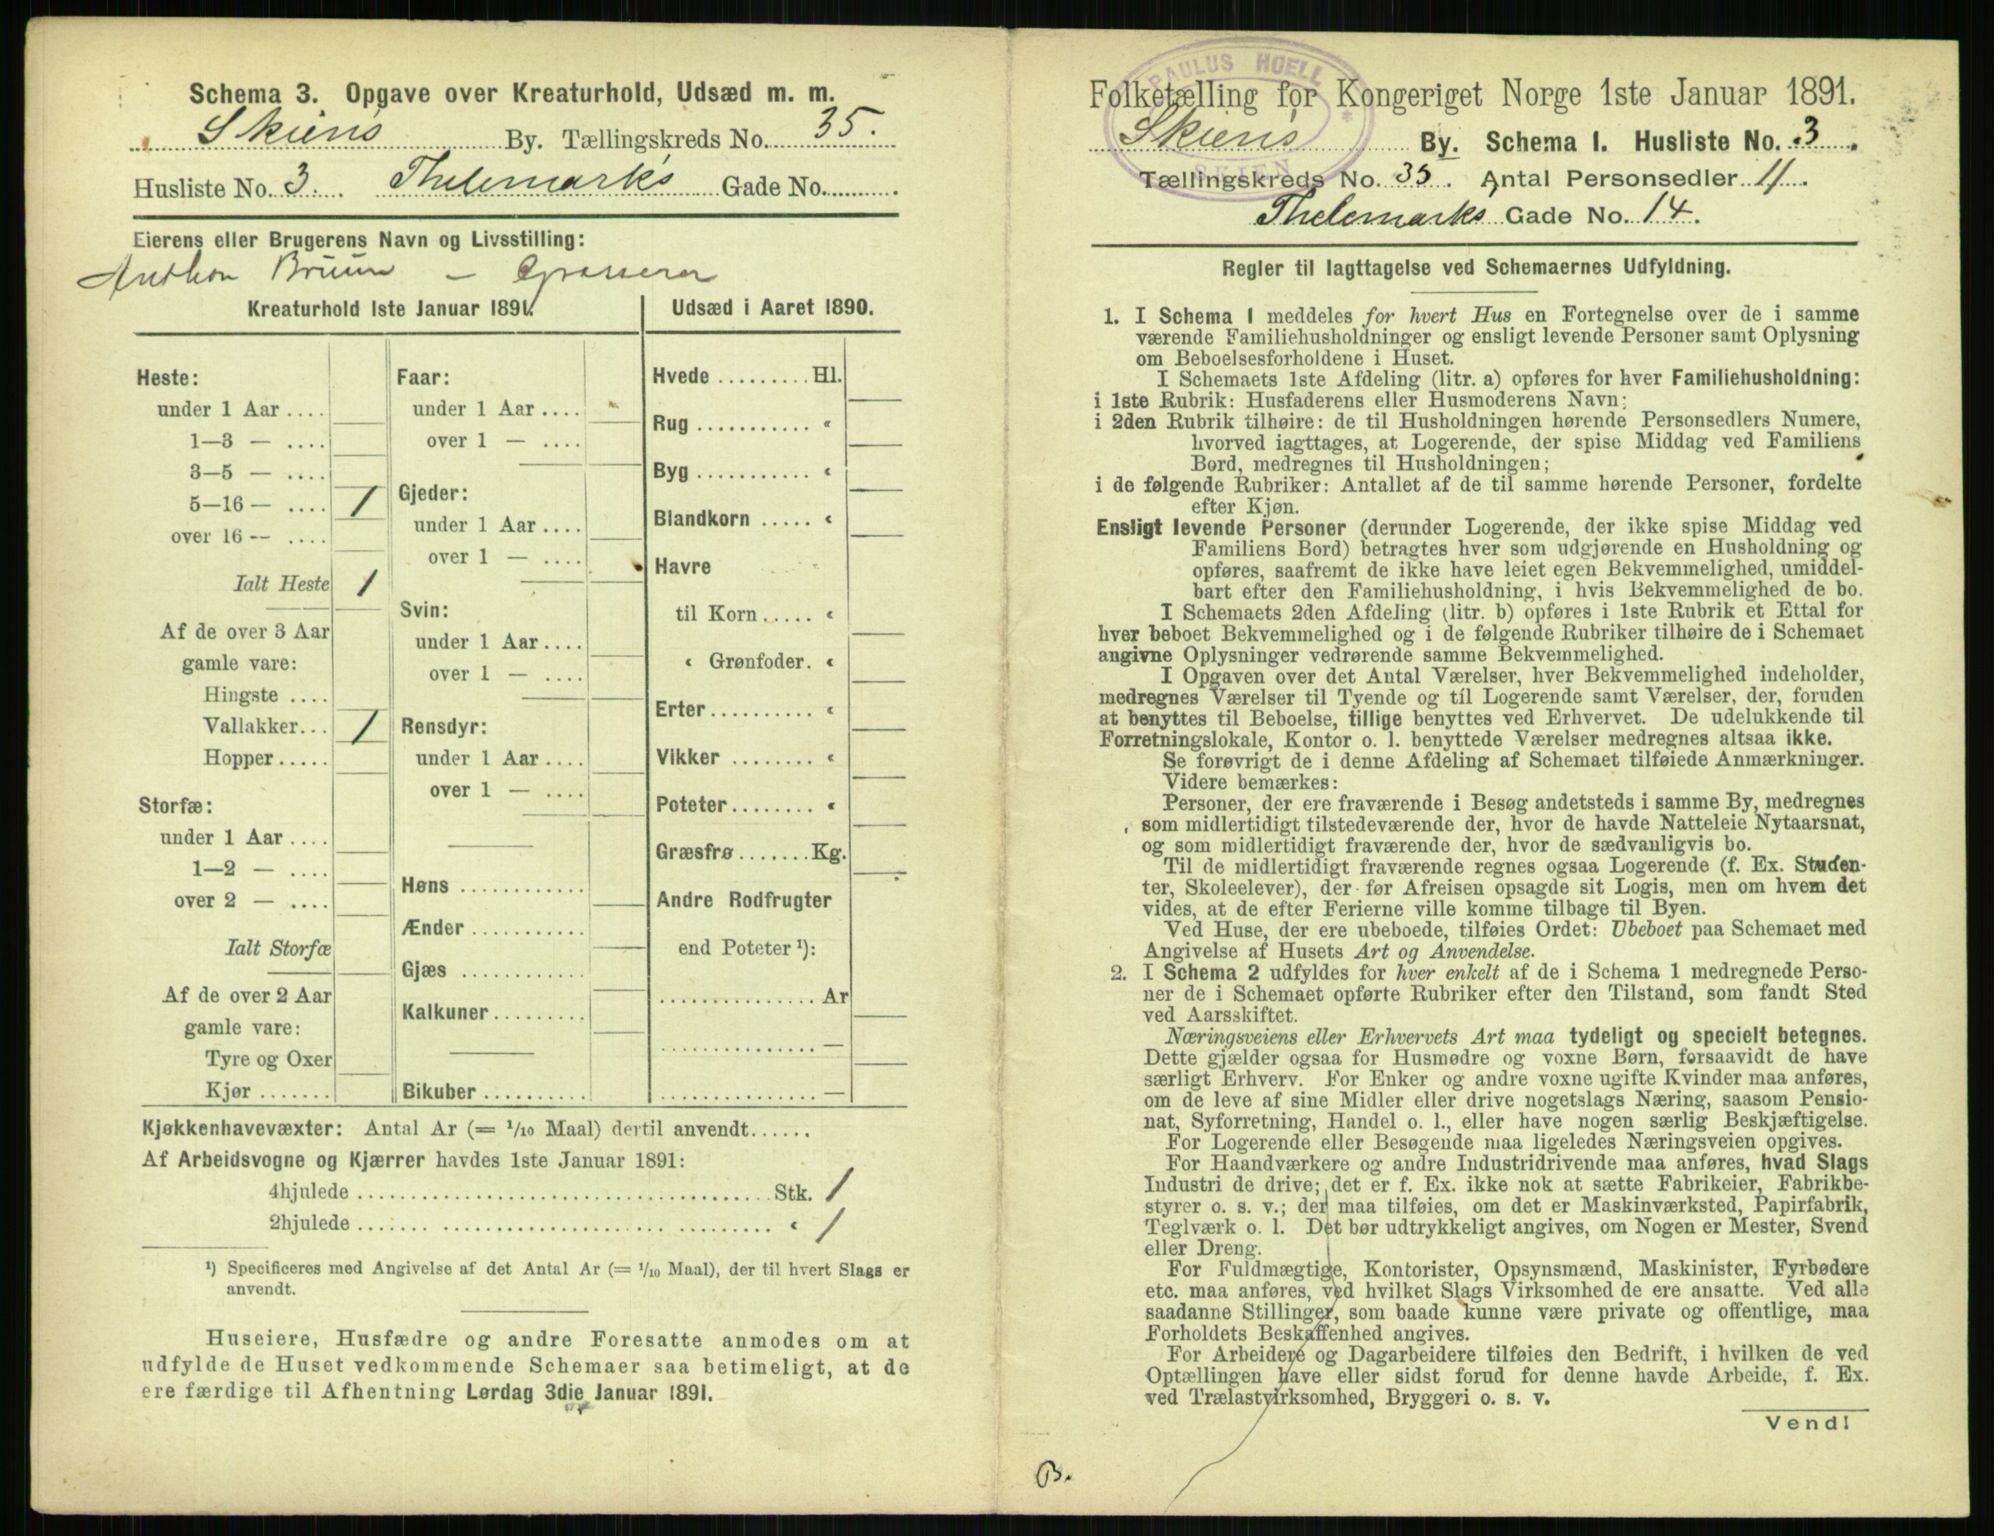 Schema 3. Opgave over Kreaturhold, Udsæd m. m.
Skiens By. Tællingskreds No. 35.
Husliste No. 3. Thelemarks Gade No.
Eierens eller Brugerens Navn og Livsstilling:
Anthon Bruun – Grosserer
Kreaturhold 1ste Januar 1891.
Heste:
under 1 Aar
1—3 —
3—5 —
5—16 — 1
over 16 —
Ialt Heste 1
Af de over 3 Aar
gamle vare:
Hingste
Vallakker 1
Hopper
Storfæ:
under 1 Aar
1—2 —
over 2 —
Ialt Storfæ
Af de over 2 Aar
gamle vare:
Tyre og Oxer
Kjør
Faar:
under 1 Aar
over 1 —
Gjeder:
under 1 Aar
over 1 —
Svin:
under 1 Aar
over 1 —
Rensdyr:
under 1 Aar
over 1 —
Høns
Ænder
Gjæs
Kalkuner
Bikuber
Udsæd i Aaret 1890.
Hvede Hl.
Rug «
Byg «
Blandkorn «
Havre
til Korn «
« Grønfoder. «
Erter «
Vikker «
Poteter «
Græsfrø Kg.
Andre Rodfrugter
end Poteter ¹):
Ar
—
—
Kjøkkenhavevæxter: Antal Ar (= 1/10 Maal) dertil anvendt
Af Arbeidsvogne og Kjærrer havdes 1ste Januar 1891:
4hjulede Stk. 1
2hjulede « 1
¹) Specificeres med Angivelse af det Antal Ar (= 1/10 Maal), der til hvert Slags er
anvendt.
Huseiere, Husfædre og andre Foresatte anmodes om at
udfylde de Huset vedkommende Schemaer saa betimeligt, at de
ere færdige til Afhentning Lørdag 3die Januar 1891.
PAULUS HOELL
SKIEN
Folketælling for Kongeriget Norge 1ste Januar 1891.
Skiens By. Schema I. Husliste No. 3.
Tællingskreds No. 35. Antal Personsedler 11.
Thelemarks Gade No. 14.
Regler til Iagttagelse ved Schemaernes Udfyldning.
1. I Schema 1 meddeles for hvert Hus en Fortegnelse over de i samme
værende Familiehusholdninger og ensligt levende Personer samt Oplysning
om Beboelsesforholdene i Huset.
I Schemaets 1ste Afdeling (litr. a) opføres for hver Familiehusholdning:
i 1ste Rubrik: Husfaderens eller Husmoderens Navn;
i 2den Rubrik tilhøire: de til Husholdningen hørende Personsedlers Numere,
hvorved iagttages, at Logerende, der spise Middag ved Familiens
Bord, medregnes til Husholdningen;
i de følgende Rubriker: Antallet af de til samme hørende Personer, fordelte
efter Kjøn.
Ensligt levende Personer (derunder Logerende, der ikke spise Middag ved
Familiens Bord) betragtes hver som udgjørende en Husholdning og
opføres, saafremt de ikke have leiet egen Bekvemmelighed, umiddel-
bart efter den Familiehusholdning, i hvis Bekvemmelighed de bo.
I Schemaets 2den Afdeling (litr. b) opføres i 1ste Rubrik et Ettal for
hver beboet Bekvemmelighed og i de følgende Rubriker tilhøire de i Schemaet
angivne Oplysninger vedrørende samme Bekvemmelighed.
I Opgaven over det Antal Værelser, hver Bekvemmelighed indeholder,
medregnes Værelser til Tyende og til Logerende samt Værelser, der, foruden
at benyttes til Beboelse, tillige benyttes ved Erhvervet. De udelukkende til
Forretningslokale, Kontor o. l. benyttede Værelser medregnes altsaa ikke.
Se forøvrigt de i denne Afdeling af Schemaet tilføiede Anmærkninger.
Videre bemærkes:
Personer, der ere fraværende i Besøg andetsteds i samme By, medregnes
som midlertidigt tilstedeværende der, hvor de havde Natteleie Nytaarsnat,
og som midlertidigt fraværende der, hvor de sædvanligvis bo.
Til de midlertidigt fraværende regnes ogsaa Logerende (f. Ex. Studen-
ter, Skoleelever), der før Afreisen opsagde sit Logis, men om hvem det
vides, at de efter Ferierne ville komme tilbage til Byen.
Ved Huse, der ere ubeboede, tilføies Ordet: Ubeboet paa Schemaet med
Angivelse af Husets Art og Anvendelse.
2. I Schema 2 udfyldes for hver enkelt af de i Schema 1 medregnede Perso-
ner de i Schemaet opførte Rubriker efter den Tilstand, som fandt Sted
ved Aarsskiftet.
Næringsveiens eller Erhvervets Art maa tydeligt og specielt betegnes.
Dette gjælder ogsaa for Husmødre og voxne Børn, forsaavidt de have
særligt Erhverv. For Enker og andre voxne ugifte Kvinder maa anføres,
om de leve af sine Midler eller drive nogetslags Næring, saasom Pensio-
nat, Syforretning, Handel o. l., eller have nogen særlig Beskjæftigelse.
For Logerende eller Besøgende maa ligeledes Næringsveien opgives.
For Haandværkere og andre Industridrivende maa anføres, hvad Slags
Industri de drive; det er f. Ex. ikke nok at sætte Fabrikeier, Fabrikbe-
styrer o. s. v.; der maa tilføies, om det er Maskinværksted, Papirfabrik,
Teglværk o. l. Det bør udtrykkeligt angives, om Nogen er Mester, Svend
eller Dreng.
For Fuldmægtige, Kontorister, Opsynsmænd, Maskinister, Fyrbødere
etc. maa anføres, ved hvilket Slags Virksomhed de ere ansatte. Ved alle
saadanne Stillinger, som baade kunne være private og offentlige, maa
Forholdets Beskaffenhed angives.
For Arbeidere og Dagarbeidere tilføies den Bedrift, i hvilken de ved
Optællingen have eller sidst forud for denne havde Arbeide, f. Ex.
ved Trælastvirksomhed, Bryggeri o. s. v.
Vend!
B.